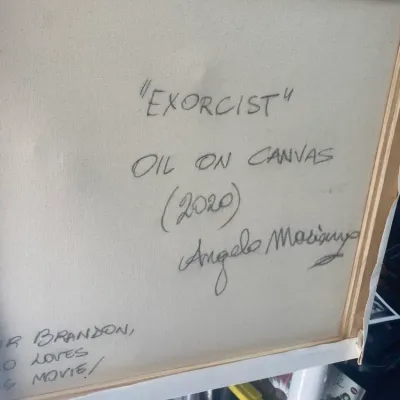 "EXORCIST"
OIL ON CANVAS
(2020)
Angelo
BRANDON,
LOVES
MOVIE!